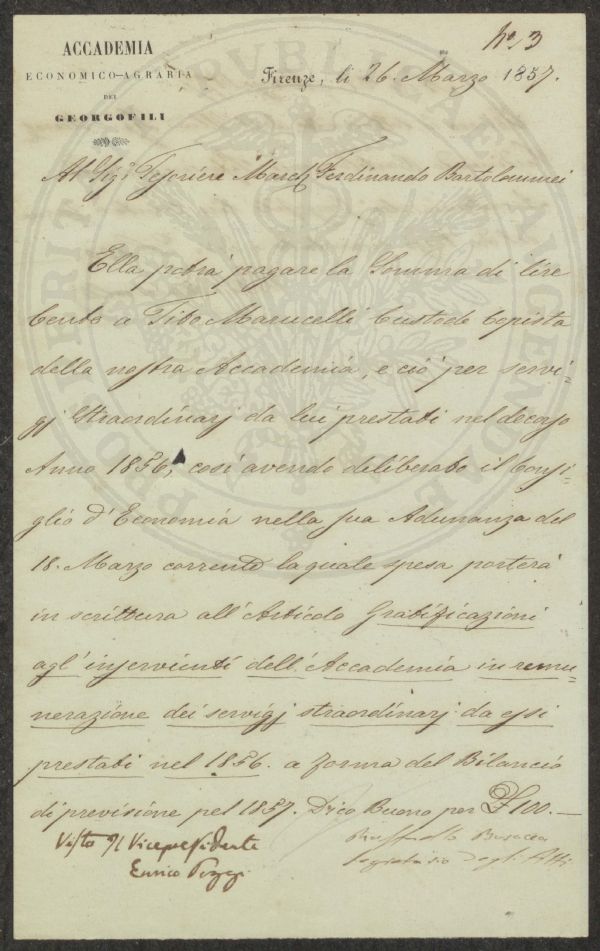 N.o 3
ACCADEMIA
ECONOMICO-AGRARIA
DEI
GEORGOFILI
Firenze, li 26. Marzo 1857.
Al Sig.r Tesoriere March. Ferdinando Bartolommei
Ella potrà pagare la Somma di lire
Cento a Tito Marucelli Custode Copista
della nostra Accademia, e ciò per servi=
gj straordinarj da lui prestati nel decorso
Anno 1856, così avendo deliberato il Consi=
glio d'Economia nella sua Adunanza del
18. Marzo corrente la quale spesa porterà
in scrittura all'Articolo Gratificazioni
agl'inservienti dell'Accademia in remu=
nerazione dei servigj straordinarj da essi
prestati nel 1856. a forma del Bilancio
di previsione pel 1857. Dico Buono per £ 100.—
Visto Il Vicepresidente
Enrico Poggi
Raffaello Busacca
Segretario degli Atti